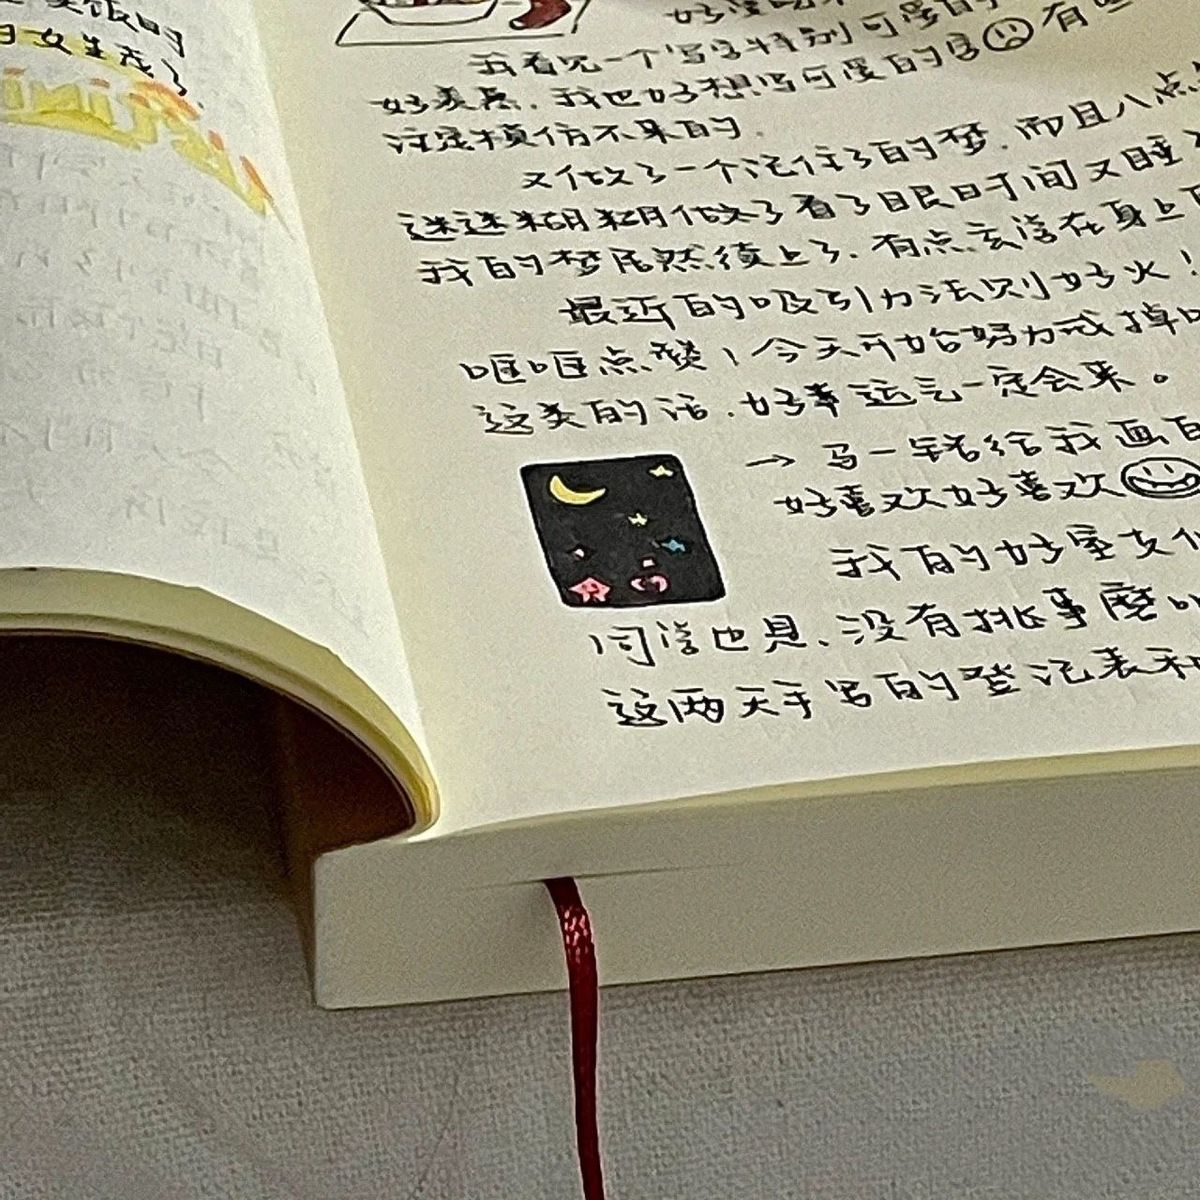 饭的
的女生茂了.
我看见一个写字特别可爱的
好羡慕.我也好想写可爱的字 有
注定模仿不来的.
又做了一个记住了的梦.而且八点
迷迷糊糊做了看了眼时间又睡
我的梦居然续上了.有点玄学在身上
最近的吸引力法则好火!
哐哐点赞!今天开始努力戒掉
这类的话.好幸运三一定会来。
→ 马一 给我画
好喜欢好喜欢
我的好室友
同学也是.没有挑事磨叽
这两天手写的登记表和